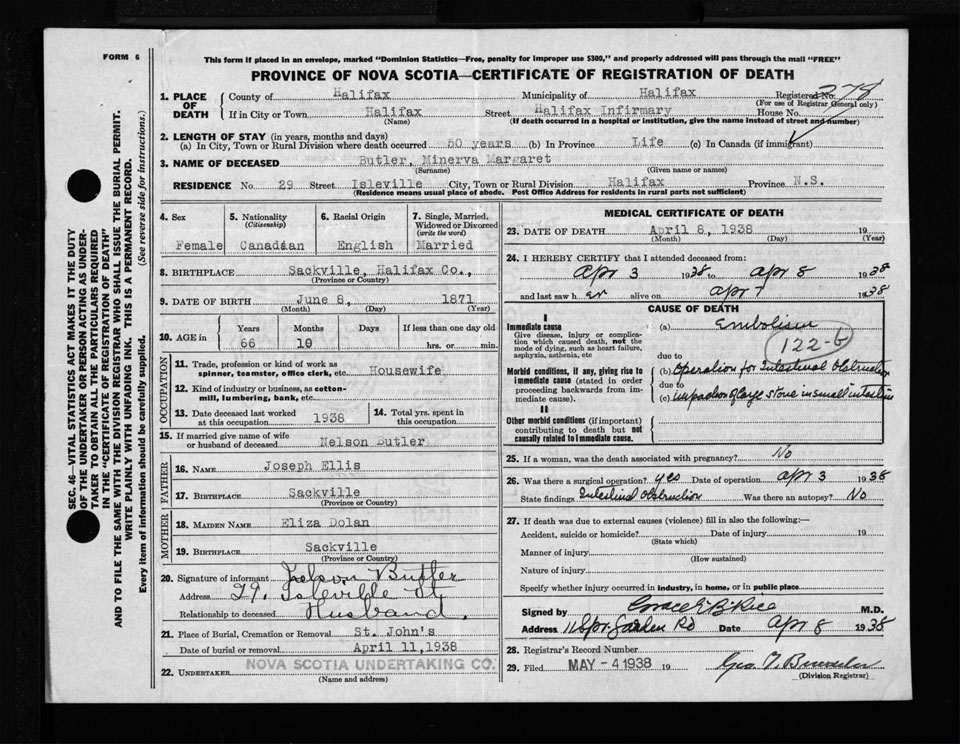 FORM 6
This form if placed in an envelope, marked "Dominion Statistics—Free, penalty for improper use $300," and properly addressed will pass through the mail "FREE"
PROVINCE OF NOVA SCOTIA—CERTIFICATE OF REGISTRATION OF DEATH
SEC. 46—VITAL STATISTICS ACT MAKES IT THE DUTY
OF THE UNDERTAKER OR PERSON ACTING AS UNDER-
TAKER TO OBTAIN ALL THE PARTICULARS REQUIRED
IN THE "CERTIFICATE OF REGISTRATION OF DEATH"
AND TO FILE THE SAME WITH THE DIVISION REGISTRAR WHO SHALL ISSUE THE BURIAL PERMIT.
WRITE PLAINLY WITH UNFADING INK. THIS IS A PERMANENT RECORD.
Every item of information should be carefully supplied. (See reverse side for instructions.)
1. PLACE OF DEATH County of Halifax Municipality of Halifax Registered No. 278
(For use of Registrar General only)
If in City or Town Halifax Street Halifax Infirmary House No.
(Name) (If death occurred in a hospital or institution, give the name instead of street and number)
2. LENGTH OF STAY (in years, months and days)
(a) In City, Town or Rural Division where death occurred 50 years (b) In Province Life (c) In Canada (if immigrant)
3. NAME OF DECEASED Butler, Minerva Margaret
(Surname) (Given name or names)
RESIDENCE No. 29 Street Isleville City, Town or Rural Division Halifax Province N.S.
(Residence means usual place of abode. Post Office Address for residents in rural parts not sufficient)
4. Sex 5. Nationality (Citizenship) 6. Racial Origin 7. Single, Married, Widowed or Divorced (write the word)
Female Canadian English Married
8. BIRTHPLACE Sackville, Halifax Co.,
(Province or Country)
9. DATE OF BIRTH June 8, 1871
(Month) (Day) (Year)
10. AGE in Years Months Days If less than one day old
66 10 hrs. or min.
OCCUPATION
11. Trade, profession or kind of work as spinner, teamster, office clerk, etc. Housewife
12. Kind of industry or business, as cotton-mill, lumbering, bank, etc.
13. Date deceased last worked at this occupation 1938 14. Total yrs. spent in this occupation
15. If married give name of wife or husband of deceased Nelson Butler
FATHER
16. NAME Joseph Ellis
17. BIRTHPLACE Sackville
(Province or Country)
MOTHER
18. MAIDEN NAME Eliza Dolan
19. BIRTHPLACE Sackville
(Province or Country)
20. Signature of informant Nelson Butler
Address 29. Isleville St.
Relationship to deceased Husband.
21. Place of Burial, Cremation or Removal St. John's
Date of burial or removal April 11, 1938
22. UNDERTAKER NOVA SCOTIA UNDERTAKING CO.
(Name and address)
MEDICAL CERTIFICATE OF DEATH
23. DATE OF DEATH April 8, 1938 19
(Month) (Day) (Year)
24. I HEREBY CERTIFY that I attended deceased from:
Apr 3 1938 to Apr 8 1938
and last saw h er alive on Apr 7 1938
CAUSE OF DEATH
I
Immediate cause (a) Embolism
Give disease, injury or complication which caused death, not the mode of dying, such as heart failure, asphyxia, asthenia, etc
122-b
due to
Morbid conditions, if any, giving rise to immediate cause (stated in order proceeding backwards from immediate cause). (b) Operation for Intestinal Obstruction
due to
(c) impaction of large stone in small intestine
II
Other morbid conditions (if important) contributing to death but not causally related to immediate cause.
25. If a woman, was the death associated with pregnancy? No
26. Was there a surgical operation? yes Date of operation Apr 3 1938
State findings Intestinal Obstruction Was there an autopsy? No
27. If death was due to external causes (violence) fill in also the following:—
Accident, suicide or homicide? Date of injury 19
(State which)
Manner of injury
(How sustained)
Nature of injury
Specify whether injury occurred in industry, in home, or in public place
Signed by Grace E. B. Rice M.D.
Address 11 Spr. Garden Rd Date Apr 8 1938
28. Registrar's Record Number
29. Filed MAY - 4 1938 19
(Division Registrar)